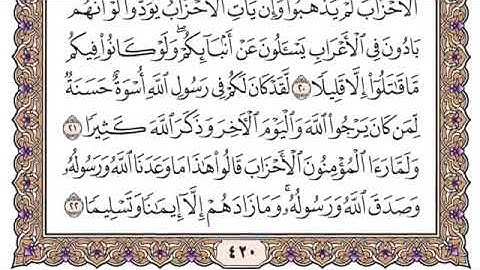 ٱلْأَحْزَابَ لَمْ يَذْهَبُوا۟ ۖ وَإِن يَأْتِ ٱلْأَحْزَابُ يَوَدُّوا۟ لَوْ أَنَّهُم
بَادُونَ فِى ٱلْأَعْرَابِ يَسْـَٔلُونَ عَنْ أَنۢبَآئِكُمْ ۖ وَلَوْ كَانُوا۟ فِيكُم
مَّا قَٰتَلُوٓا۟ إِلَّا قَلِيلًا ۝٢٠ لَّقَدْ كَانَ لَكُمْ فِى رَسُولِ ٱللَّهِ أُسْوَةٌ حَسَنَةٌ
لِّمَن كَانَ يَرْجُوا۟ ٱللَّهَ وَٱلْيَوْمَ ٱلْـَٔاخِرَ وَذَكَرَ ٱللَّهَ كَثِيرًا ۝٢١
وَلَمَّا رَءَا ٱلْمُؤْمِنُونَ ٱلْأَحْزَابَ قَالُوا۟ هَٰذَا مَا وَعَدَنَا ٱللَّهُ وَرَسُولُهُۥ
وَصَدَقَ ٱللَّهُ وَرَسُولُهُۥ ۚ وَمَا زَادَهُمْ إِلَّآ إِيمَٰنًا وَتَسْلِيمًا ۝٢٢
٤٢٠